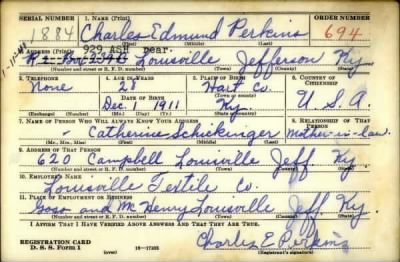 SERIAL NUMBER 1. NAME (Print) ORDER NUMBER
1884 Charles Edmund Perkins 694
(First) (Middle) (Last)
2. ADDRESS (Print) 929 ASH rear.
R 2 - Box 234B Louisville Jefferson Ky
(Number and street or R. F. D. number) (Town) (County) (State)
3. TELEPHONE 4. AGE IN YEARS 5. PLACE OF BIRTH 6. COUNTRY OF CITIZENSHIP
None 28 Hart Co.
DATE OF BIRTH
Dec. 1 1911 Ky. U.S.A.
(Exchange) (Number) (Mo.) (Day) (Yr.) (State or country)
7. NAME OF PERSON WHO WILL ALWAYS KNOW YOUR ADDRESS 8. RELATIONSHIP OF THAT PERSON
- Catherine Schickinger Mother-in-law.
(Mr., Mrs., Miss) (First) (Middle) (Last)
9. ADDRESS OF THAT PERSON
620 Campbell Louisville Jeff. Ky
(Number and street or R. F. D. number) (Town) (County) (State)
10. EMPLOYER'S NAME
Louisville Textile Co.
11. PLACE OF EMPLOYMENT OR BUSINESS
and Mc Henry Louisville Jeff. Ky.
(Number and street or R. F. D. number) (Town) (County) (State)
I AFFIRM THAT I HAVE VERIFIED ABOVE ANSWERS AND THAT THEY ARE TRUE.
REGISTRATION CARD
D. S. S. Form 1 16-17105 Charles E Perkins
(Registrant's signature)